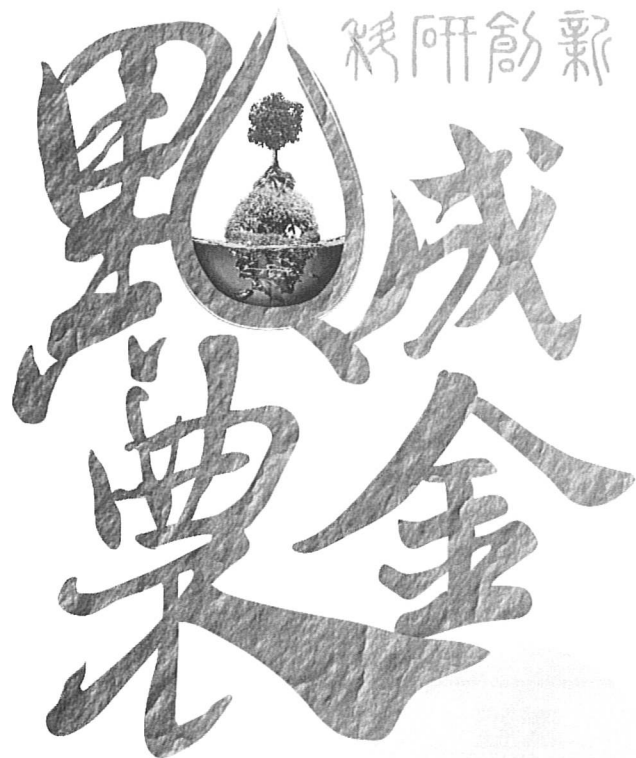 科研創新
點成
農金